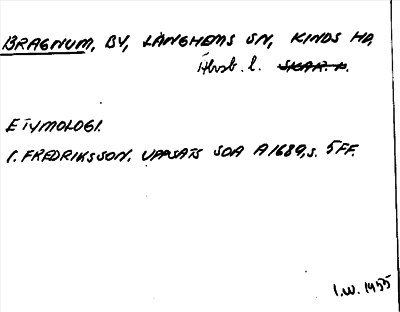 BRAGNUM, BY, LÅNGHEMS SN, KINDS HD,
Älvsb. l. SKAR. L.
ETYMOLOGI.
I. FREDRIKSSON. UPPSATS SOA A1689, s. 5FF.
I.W. 1955